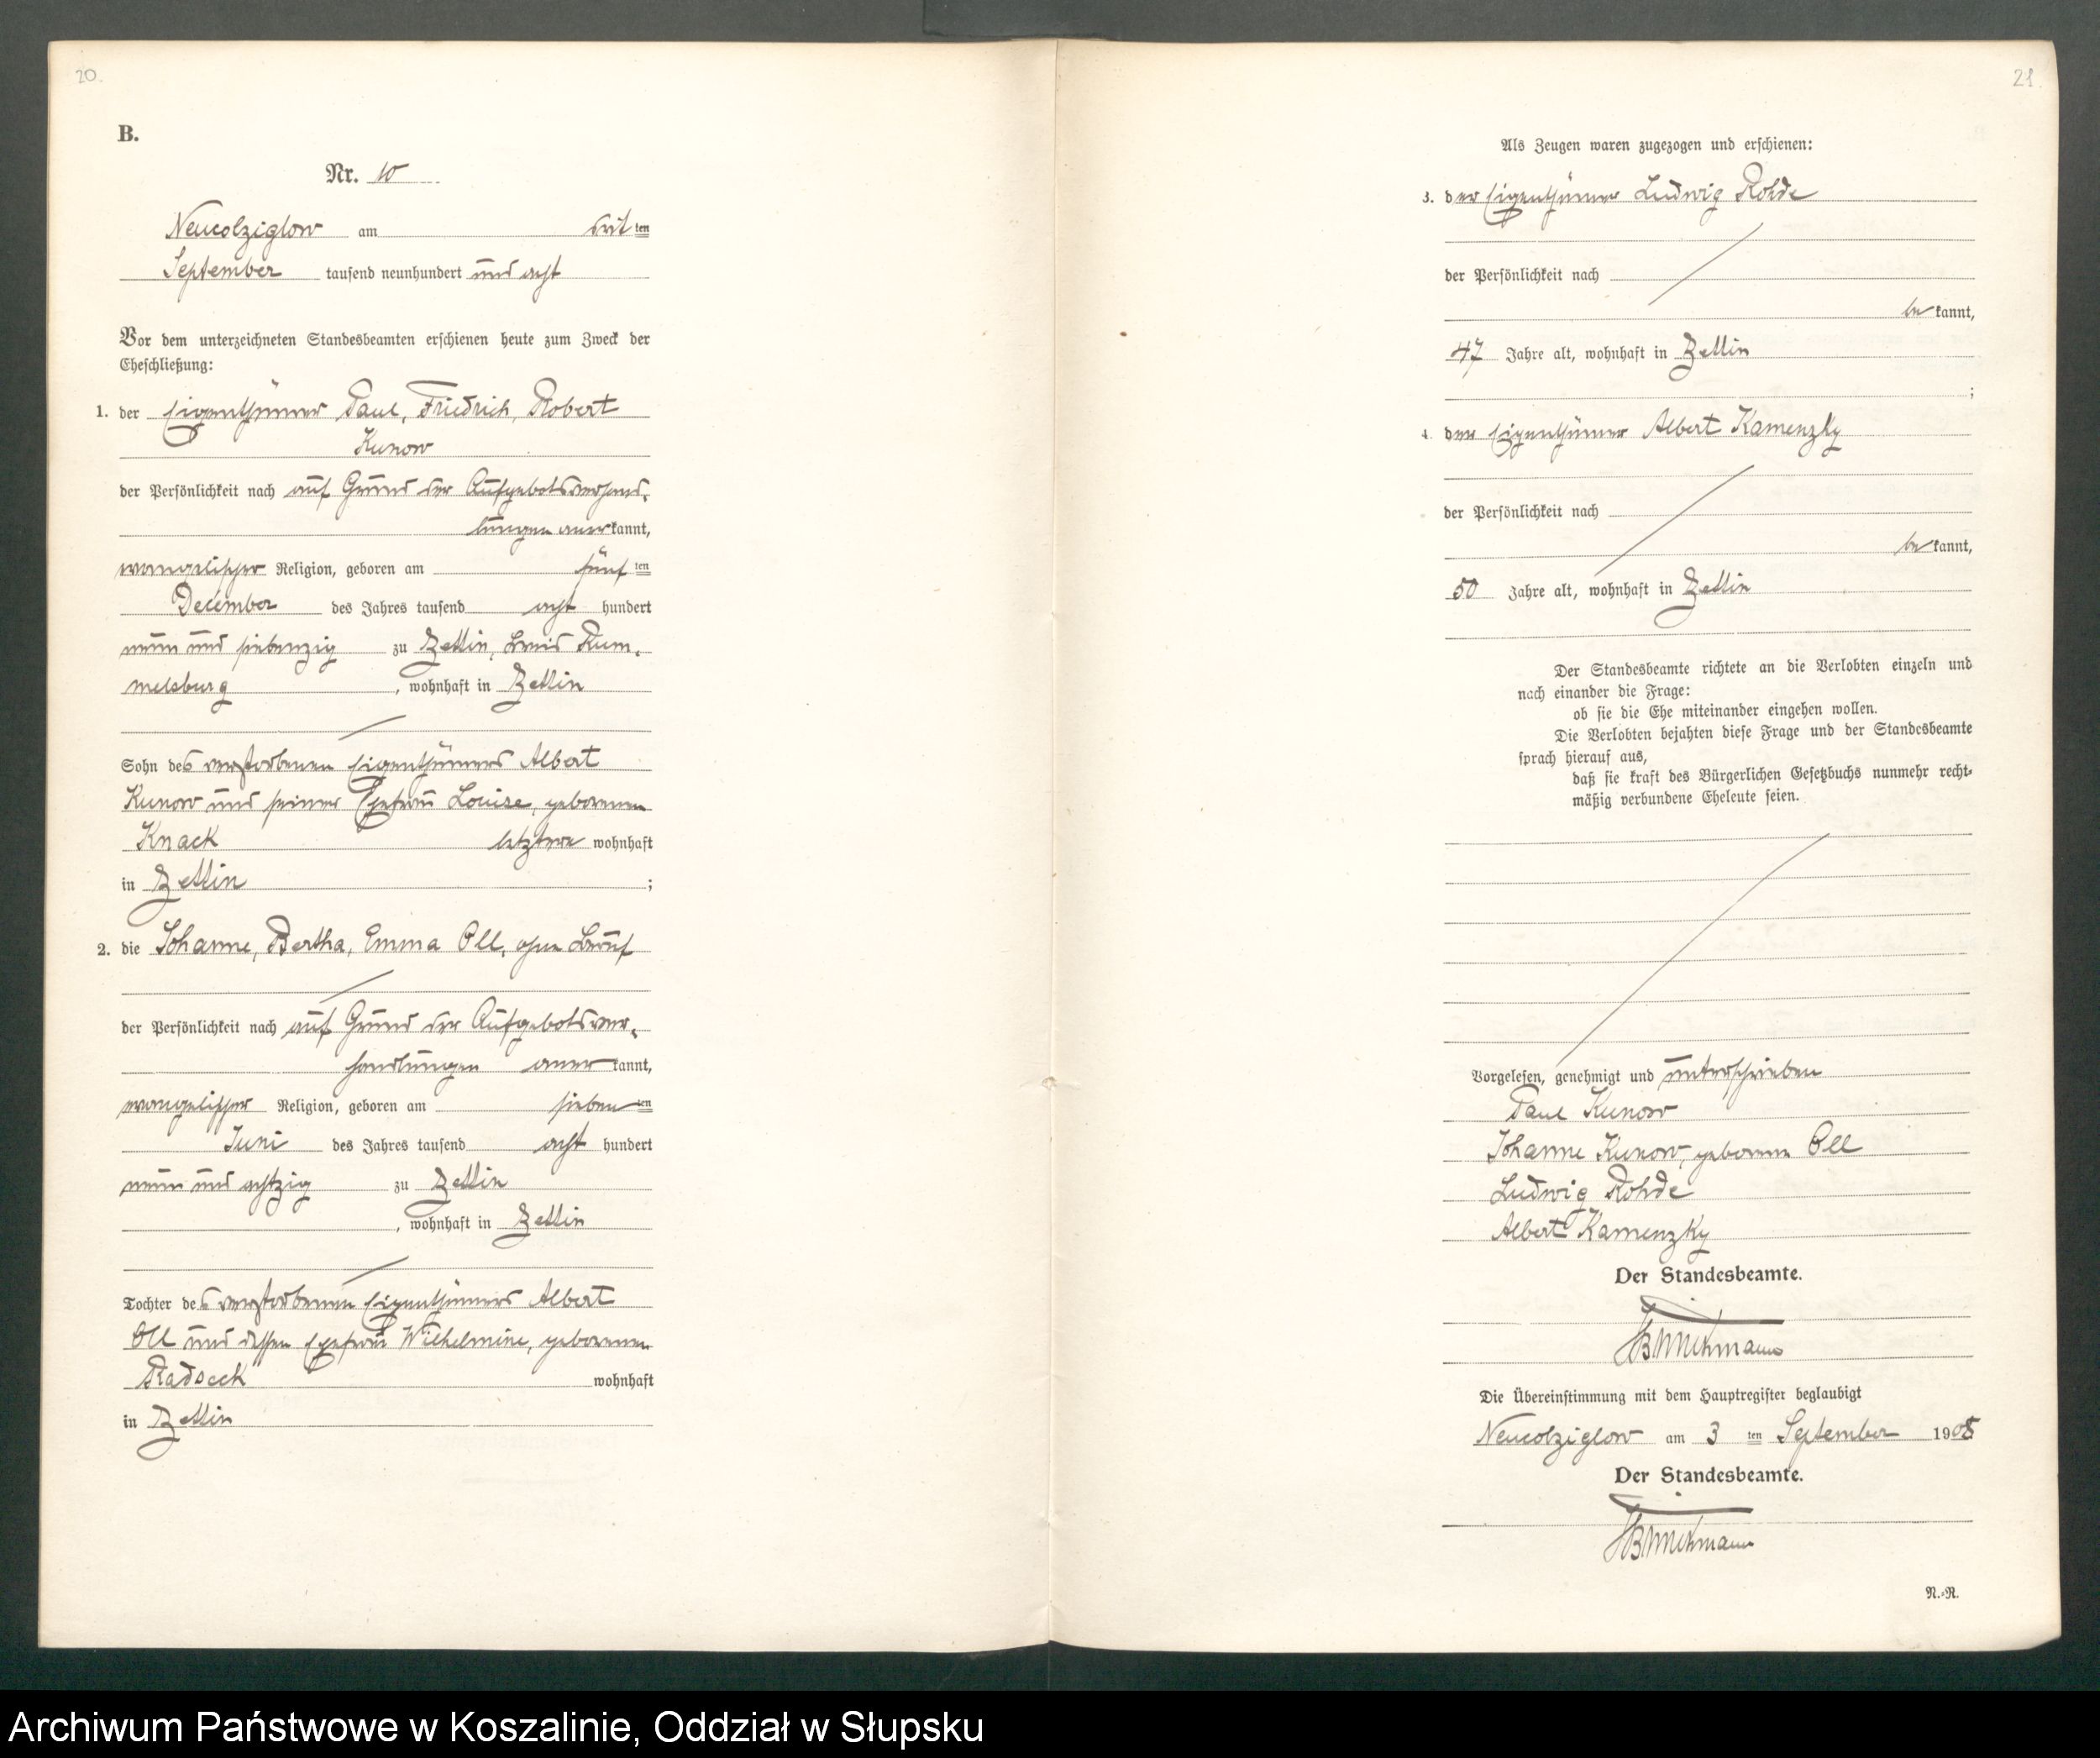 20.
B.
Nr. 10
Neucolziglow am drit ten
September tausend neunhundert und acht
Vor dem unterzeichneten Standesbeamten erschienen heute zum Zweck der
Eheschließung:
1. der Eigenthümer Paul, Friedrich, Robert
Kunow
der Persönlichkeit nach auf Grund der Aufgebotsverhand-
lungen anerkannt,
evangelischer Religion, geboren am fünf ten
December des Jahres tausend acht hundert
neun und siebenzig zu Zettin, Kreis Rum-
melsburg, wohnhaft in Zettin
Sohn des verstorbenen Eigenthümers Albert
Kunow und seiner Ehefrau Louise, geborenen
Knack letztere wohnhaft
in Zettin ;
2. die Johanne, Bertha, Emma Oll, ohne Beruf
der Persönlichkeit nach auf Grund der Aufgebotsver-
handlungen anerkannt,
evangelischer Religion, geboren am sieben ten
Juni des Jahres tausend acht hundert
neun und achtzig zu Zettin
, wohnhaft in Zettin
Tochter des verstorbenen Eigenthümers Albert
Oll und dessen Ehefrau Wilhelmine, geborenen
Radseck wohnhaft
in Zettin
21.
Als Zeugen waren zugezogen und erschienen:
3. der Eigenthümer Ludwig Rohde
der Persönlichkeit nach
bekannt,
47 Jahre alt, wohnhaft in Zettin
;
4. der Eigenthümer Albert Kamenzky
der Persönlichkeit nach
bekannt,
50 Jahre alt, wohnhaft in Zettin
Der Standesbeamte richtete an die Verlobten einzeln und
nach einander die Frage:
ob sie die Ehe miteinander eingehen wollen.
Die Verlobten bejahten diese Frage und der Standesbeamte
sprach hierauf aus,
daß sie kraft des Bürgerlichen Gesetzbuchs nunmehr recht-
mäßig verbundene Eheleute seien.
Vorgelesen, genehmigt und unterschrieben
Paul Kunow
Johanne Kunow, geborene Oll
Ludwig Rohde
Albert Kamenzky
Der Standesbeamte.
Die Übereinstimmung mit dem Hauptregister beglaubigt
Neucolziglow am 3 ten September 1908
Der Standesbeamte.
N.-R.
Archiwum Państwowe w Koszalinie, Oddział w Słupsku